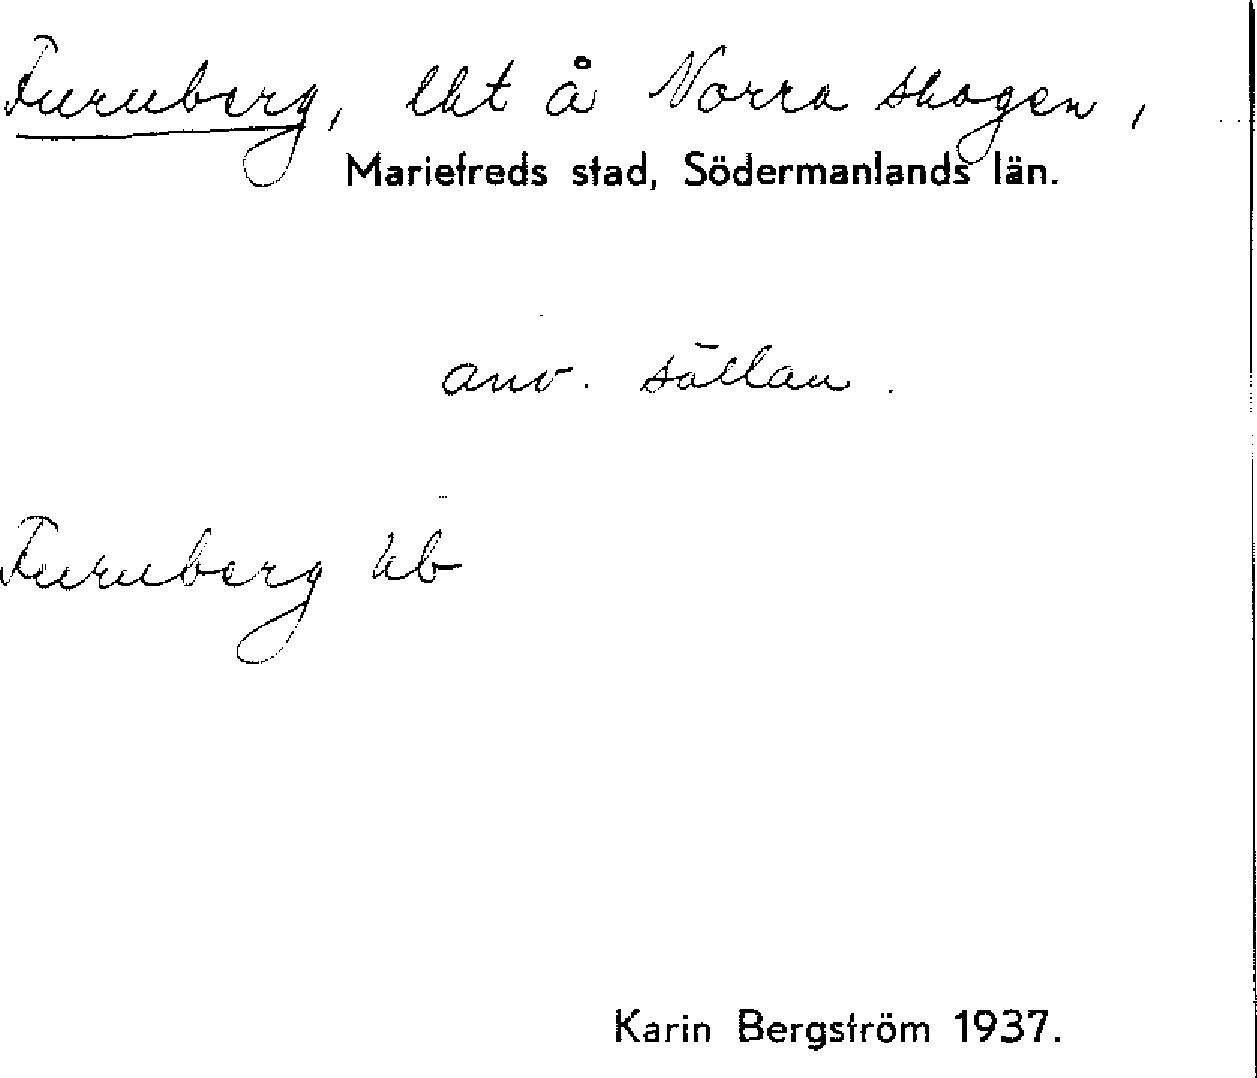 Furuberg, lht å Norra skogen,
Mariefreds stad, Södermanlands län.
anv. sällan.
Furuberg kb
Karin Bergström 1937.